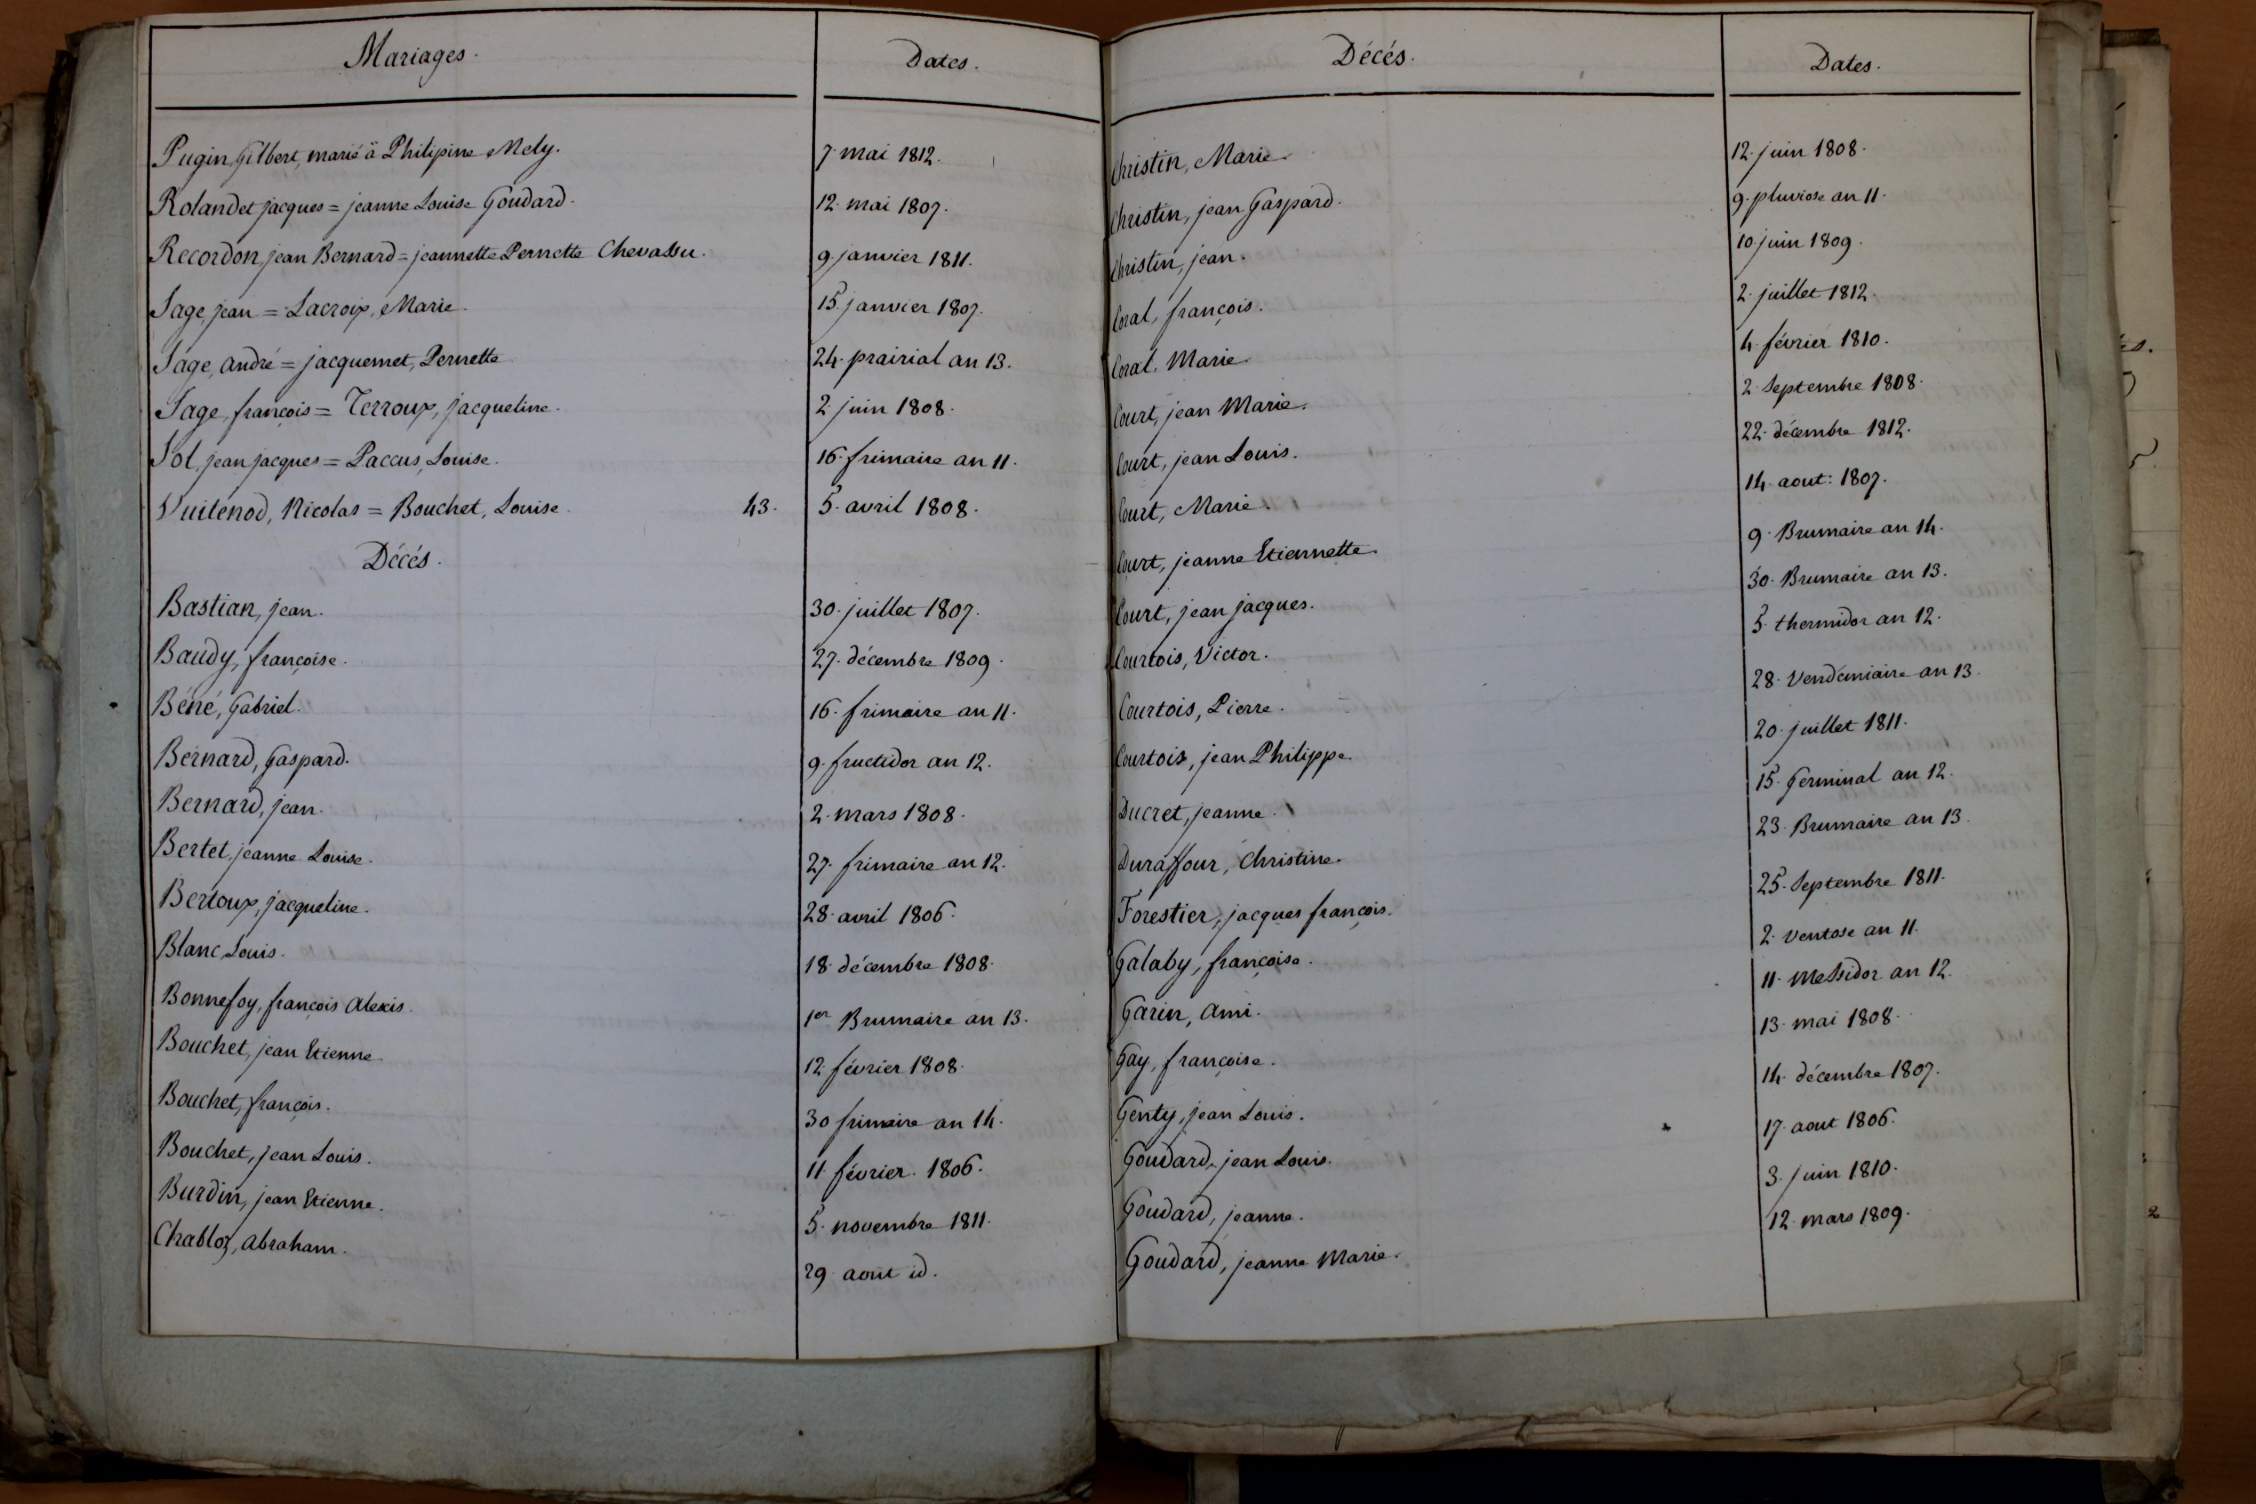 Mariages. Dates.
Pugin, Gilbert, marié à Philipine Mely. 7. mai 1812.
Rolandet jacques = jeanne Louise Goudard. 12. mai 1807.
Recordon, jean Bernard = jeannette Pernette Chevassu. 9. janvier 1811.
Sage, jean = Lacroix, Marie. 15. janvier 1807.
Sage, andré = jacquemet, Pernette 24. prairial an 13.
Sage, françois = Terroux, jacqueline. 2. juin 1808.
Sol, jean jacques = Paccus, Louise. 16. frimaire an 11.
Vuilenod, Nicolas = Bouchet, Louise. 43. 5. avril 1808.
Décés.
Bastian, jean. 30. juillet 1807.
Baudy, françoise. 27. décembre 1809.
Béné, Gabriel. 16. frimaire an 11.
Bernard, Gaspard. 9. fructidor an 12.
Bernard, jean. 2. mars 1808.
Bertet, jeanne Louise. 27. frimaire an 12.
Bertoux, jacqueline. 28. avril 1806.
Blanc, Louis. 18. décembre 1808.
Bonnefoy, françois alexis. 1er Brumaire an 13.
Bouchet, jean Etienne 12. février 1808.
Bouchet, françois. 30 frimaire an 14.
Bouchet, jean Louis. 11 février. 1806.
Burdin, jean Etienne. 5. novembre 1811.
Chabloz, abraham. 29. aout id.
Décés. Dates.
Christin, Marie. 12. juin 1808.
Christin, jean Gaspard. 9. pluviose an 11.
Christin, jean. 10. juin 1809.
Coral, françois. 2. juillet 1812.
Coral. Marie 4. février 1810.
Court, jean Marie. 2. Septembre 1808.
Court, jean Louis. 22. décembre 1812.
Court, Marie. 14. aout: 1807.
Court, jeanne Etiennette 9. Brumaire an 14.
Court, jean jacques. 30. Brumaire an 13.
Courtois, Victor. 5. thermidor an 12.
Courtois, Pierre. 28. Vendémiaire an 13.
Courtois, jean Philippe 20. juillet 1811.
Ducret, jeanne. 15. Germinal an 12.
Duraffour, Christine. 23. Brumaire an 13.
Forestier, jacques françois. 25. Septembre 1811.
Galaby, françoise. 2. ventose an 11.
Garin, ami. 11. Messidor an 12.
Gay, françoise. 13. mai 1808.
Genty, jean Louis. 14. décembre 1807.
Goudard, jean Louis. 17. aout 1806.
Goudard, jeanne. 3. juin 1810.
Goudard, jeanne Marie. 12. mars 1809.